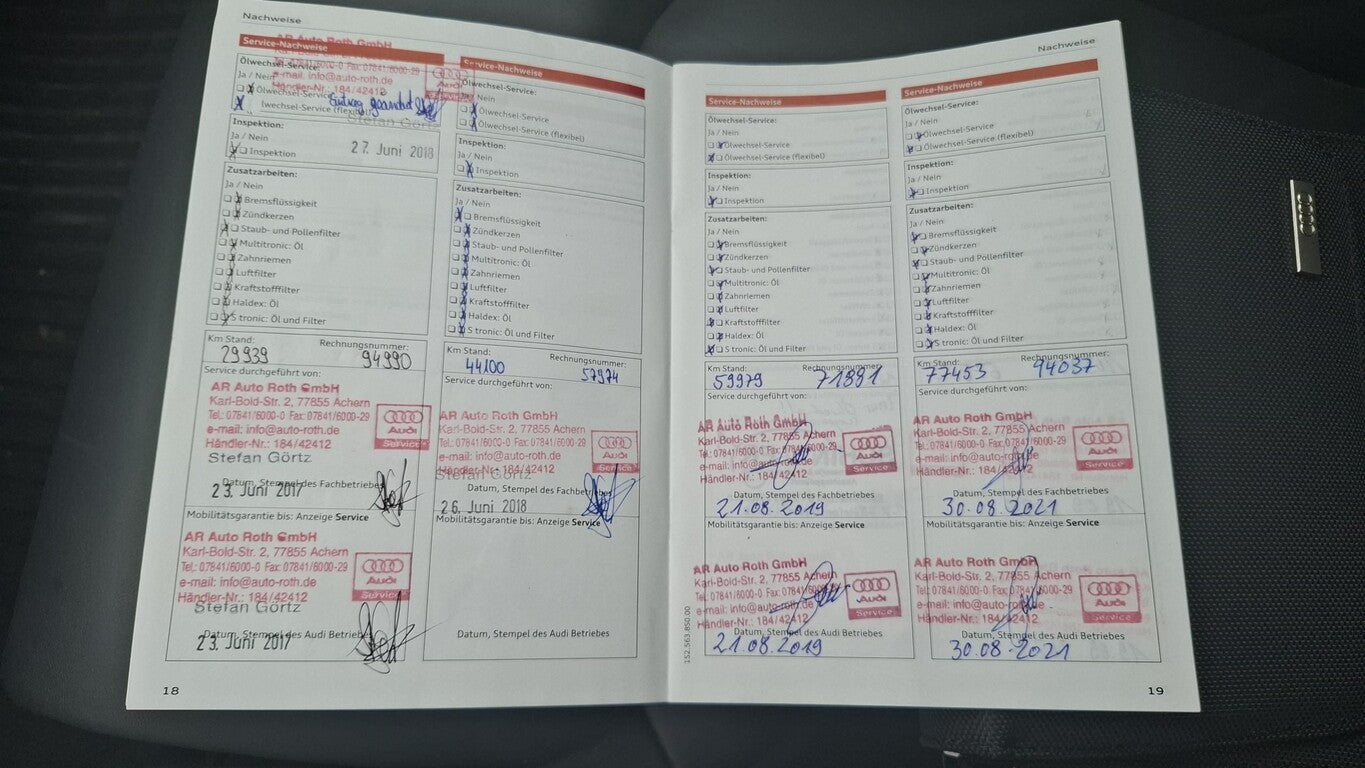 Nachweise
Service-Nachweise
AR Auto Roth GmbH
07841/6000-0 Fax: 07841/6000-29
e-mail: info@auto-roth.de
Händler-Nr.: 184/42412
Audi
Ölwechsel-Service:
Ja / Nein
Ölwechsel-Service
lwechsel-Service (flexibel)
Eintrag geändert
Stefan Görtz
Inspektion:
Ja / Nein
Inspektion
27. Juni 2018
Zusatzarbeiten:
Ja / Nein
Bremsflüssigkeit
Zündkerzen
Staub- und Pollenfilter
Multitronic: Öl
Zahnriemen
Luftfilter
Kraftstofffilter
Haldex: Öl
S tronic: Öl und Filter
Km Stand: Rechnungsnummer:
29939 94990
Service durchgeführt von:
AR Auto Roth GmbH
Karl-Bold-Str. 2, 77855 Achern
Tel.: 07841/6000-0 Fax: 07841/6000-29
e-mail: info@auto-roth.de
Händler-Nr.: 184/42412
Audi
Service
Stefan Görtz
Datum, Stempel des Fachbetriebes
23. Juni 2017
Mobilitätsgarantie bis: Anzeige Service
AR Auto Roth GmbH
Karl-Bold-Str. 2, 77855 Achern
Tel.: 07841/6000-0 Fax: 07841/6000-29
e-mail: info@auto-roth.de
Händler-Nr.: 184/42412
Audi
Service
Stefan Görtz
Datum, Stempel des Audi Betriebes
23. Juni 2017
18
Service-Nachweise
Ölwechsel-Service:
Nein
Ölwechsel-Service
Ölwechsel-Service (flexibel)
Inspektion:
Ja / Nein
Inspektion
Zusatzarbeiten:
Ja / Nein
Bremsflüssigkeit
Zündkerzen
Staub- und Pollenfilter
Multitronic: Öl
Zahnriemen
Luftfilter
Kraftstofffilter
Haldex: Öl
S tronic: Öl und Filter
Km Stand: Rechnungsnummer:
44100 57974
Service durchgeführt von:
AR Auto Roth GmbH
Karl-Bold-Str. 2, 77855 Achern
Tel.: 07841/6000-0 Fax: 07841/6000-29
e-mail: info@auto-roth.de
Händler-Nr.: 184/42412
Audi
Service
Stefan Görtz
Datum, Stempel des Fachbetriebes
26. Juni 2018
Mobilitätsgarantie bis: Anzeige Service
Datum, Stempel des Audi Betriebes
Nachweise
Service-Nachweise
Ölwechsel-Service:
Ja / Nein
Ölwechsel-Service
Ölwechsel-Service (flexibel)
Inspektion:
Ja / Nein
Inspektion
Zusatzarbeiten:
Ja / Nein
Bremsflüssigkeit
Zündkerzen
Staub- und Pollenfilter
Multitronic: Öl
Zahnriemen
Luftfilter
Kraftstofffilter
Haldex: Öl
S tronic: Öl und Filter
Km Stand: Rechnungsnummer:
59979 71891
Service durchgeführt von:
AR Auto Roth GmbH
Karl-Bold-Str. 2, 77855 Achern
Tel.: 07841/6000-0 Fax: 07841/6000-29
e-mail: info@auto-roth.de
Händler-Nr.: 184/42412
Audi
Service
Datum, Stempel des Fachbetriebes
21.08.2019
Mobilitätsgarantie bis: Anzeige Service
AR Auto Roth GmbH
Karl-Bold-Str. 2, 77855 Achern
Tel.: 07841/6000-0 Fax: 07841/6000-29
e-mail: info@auto-roth.de
Händler-Nr.: 184/42412
Audi
Service
Datum, Stempel des Audi Betriebes
21.08.2019
152.563.8S0.00
Service-Nachweise
Ölwechsel-Service:
Ja / Nein
Ölwechsel-Service
Ölwechsel-Service (flexibel)
Inspektion:
Ja / Nein
Inspektion
Zusatzarbeiten:
Ja / Nein
Bremsflüssigkeit
Zündkerzen
Staub- und Pollenfilter
Multitronic: Öl
Zahnriemen
Luftfilter
Kraftstofffilter
Haldex: Öl
S tronic: Öl und Filter
Km Stand: Rechnungsnummer:
77453 94037
Service durchgeführt von:
AR Auto Roth GmbH
Karl-Bold-Str. 2, 77855 Achern
Tel.: 07841/6000-0 Fax: 07841/6000-29
e-mail: info@auto-roth.de
Händler-Nr.: 184/42412
Audi
Service
Datum, Stempel des Fachbetriebes
30.08.2021
Mobilitätsgarantie bis: Anzeige Service
AR Auto Roth GmbH
Karl-Bold-Str. 2, 77855 Achern
Tel.: 07841/6000-0 Fax: 07841/6000-29
e-mail: info@auto-roth.de
Händler-Nr.: 184/42412
Audi
Service
Datum, Stempel des Audi Betriebes
30.08.2021
19